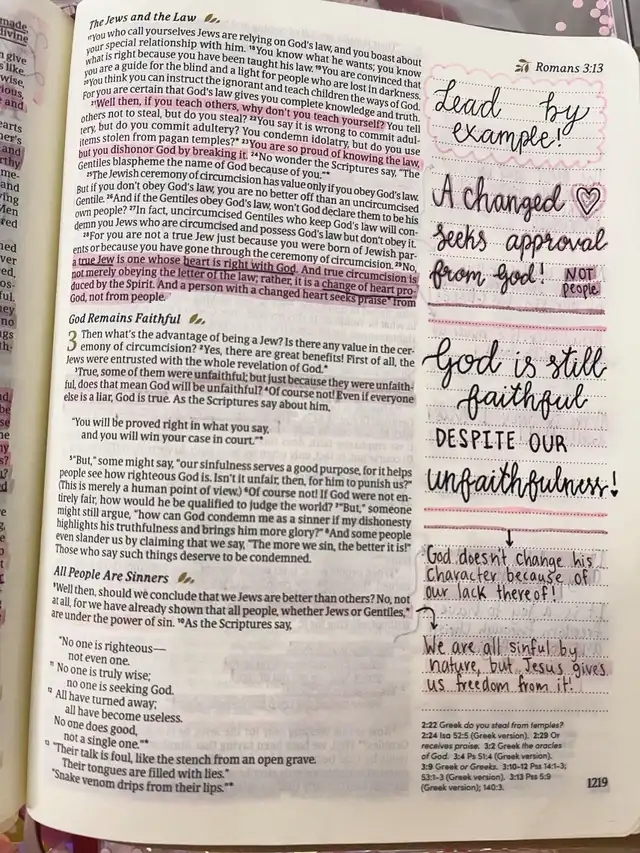 The Jews and the Law
¹⁷You who call yourselves Jews are relying on God's law, and you boast about
your special relationship with him. ¹⁸You know what he wants; you know
what is right because you have been taught his law. ¹⁹You are convinced that
you are a guide for the blind and a light for people who are lost in darkness.
²⁰You think you can instruct the ignorant and teach children the ways of God.
For you are certain that God's law gives you complete knowledge and truth.
²¹Well then, if you teach others, why don't you teach yourself? You tell
others not to steal, but do you steal? ²²You say it is wrong to commit adul-
tery, but do you commit adultery? You condemn idolatry, but do you use
items stolen from pagan temples?* ²³You are so proud of knowing the law,
but you dishonor God by breaking it. ²⁴No wonder the Scriptures say, "The
Gentiles blaspheme the name of God because of you."*
²⁵The Jewish ceremony of circumcision has value only if you obey God's law.
But if you don't obey God's law, you are no better off than an uncircumcised
Gentile. ²⁶And if the Gentiles obey God's law, won't God declare them to be his
own people? ²⁷In fact, uncircumcised Gentiles who keep God's law will con-
demn you Jews who are circumcised and possess God's law but don't obey it.
²⁸For you are not a true Jew just because you were born of Jewish par-
ents or because you have gone through the ceremony of circumcision. ²⁹No,
a true Jew is one whose heart is right with God. And true circumcision is
not merely obeying the letter of the law; rather, it is a change of heart pro-
duced by the Spirit. And a person with a changed heart seeks praise* from
God, not from people.
God Remains Faithful
3 Then what's the advantage of being a Jew? Is there any value in the cer-
emony of circumcision? ²Yes, there are great benefits! First of all, the
Jews were entrusted with the whole revelation of God.*
³True, some of them were unfaithful; but just because they were unfaith-
ful, does that mean God will be unfaithful? ⁴Of course not! Even if everyone
else is a liar, God is true. As the Scriptures say about him,
"You will be proved right in what you say,
and you will win your case in court."*
⁵"But," some might say, "our sinfulness serves a good purpose, for it helps
people see how righteous God is. Isn't it unfair, then, for him to punish us?"
(This is merely a human point of view.) ⁶Of course not! If God were not en-
tirely fair, how would he be qualified to judge the world? ⁷"But," someone
might still argue, "how can God condemn me as a sinner if my dishonesty
highlights his truthfulness and brings him more glory?" ⁸And some people
even slander us by claiming that we say, "The more we sin, the better it is!"
Those who say such things deserve to be condemned.
All People Are Sinners
⁹Well then, should we conclude that we Jews are better than others? No, not
at all, for we have already shown that all people, whether Jews or Gentiles,*
are under the power of sin. ¹⁰As the Scriptures say,
"No one is righteous—
not even one.
¹¹ No one is truly wise;
no one is seeking God.
¹² All have turned away;
all have become useless.
No one does good,
not a single one."*
¹³ "Their talk is foul, like the stench from an open grave.
Their tongues are filled with lies."
"Snake venom drips from their lips."*
Romans 3:13
Lead by
example!
A changed ♡
seeks approval
from God! NOT
people
God is still
faithful
DESPITE OUR
unfaithfulness!
God doesn't change his
character because of
our lack thereof!
We are all sinful by
nature, but Jesus gives
us freedom from it!
2:22 Greek do you steal from temples?
2:24 Isa 52:5 (Greek version). 2:29 Or
receives praise. 3:2 Greek the oracles
of God. 3:4 Ps 51:4 (Greek version).
3:9 Greek or Greeks. 3:10-12 Pss 14:1-3;
53:1-3 (Greek version). 3:13 Pss 5:9
(Greek version); 140:3.
1219